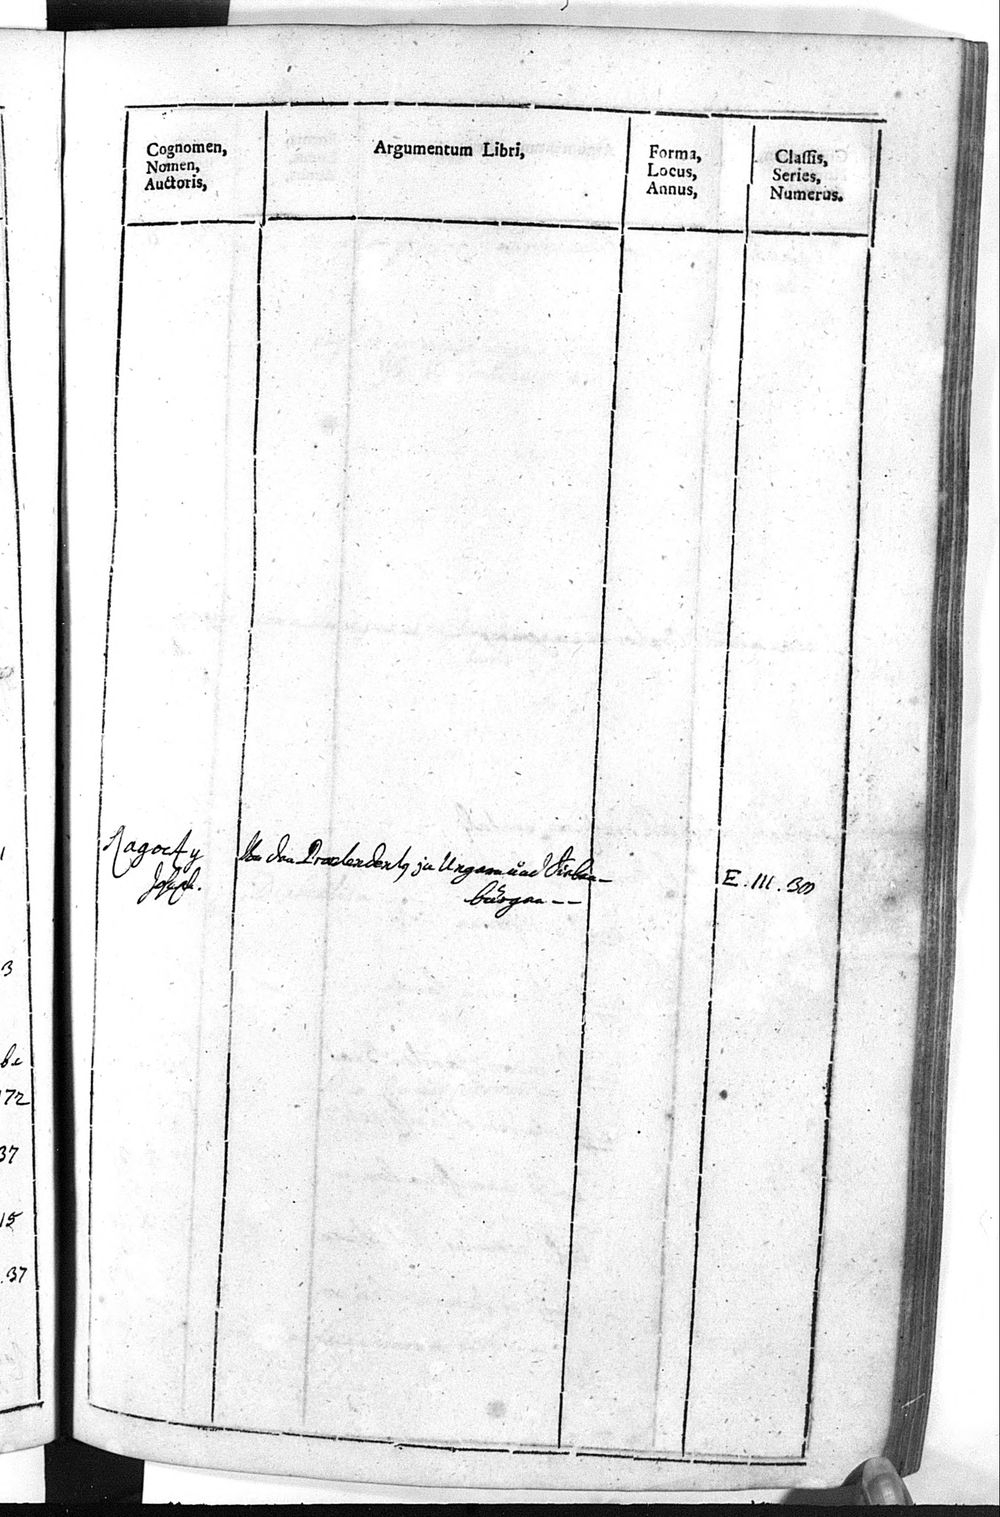 Cognomen,
Nomen,
Auctoris,
Argumentum Libri,
Forma,
Locus,
Annus,
Classis,
Series,
Numerus.
Ragoczy
Joseph.
Praetendent zu Ungarn und Sieben-
bürgen --
E. III. 30
3
be
172
37
15
.37